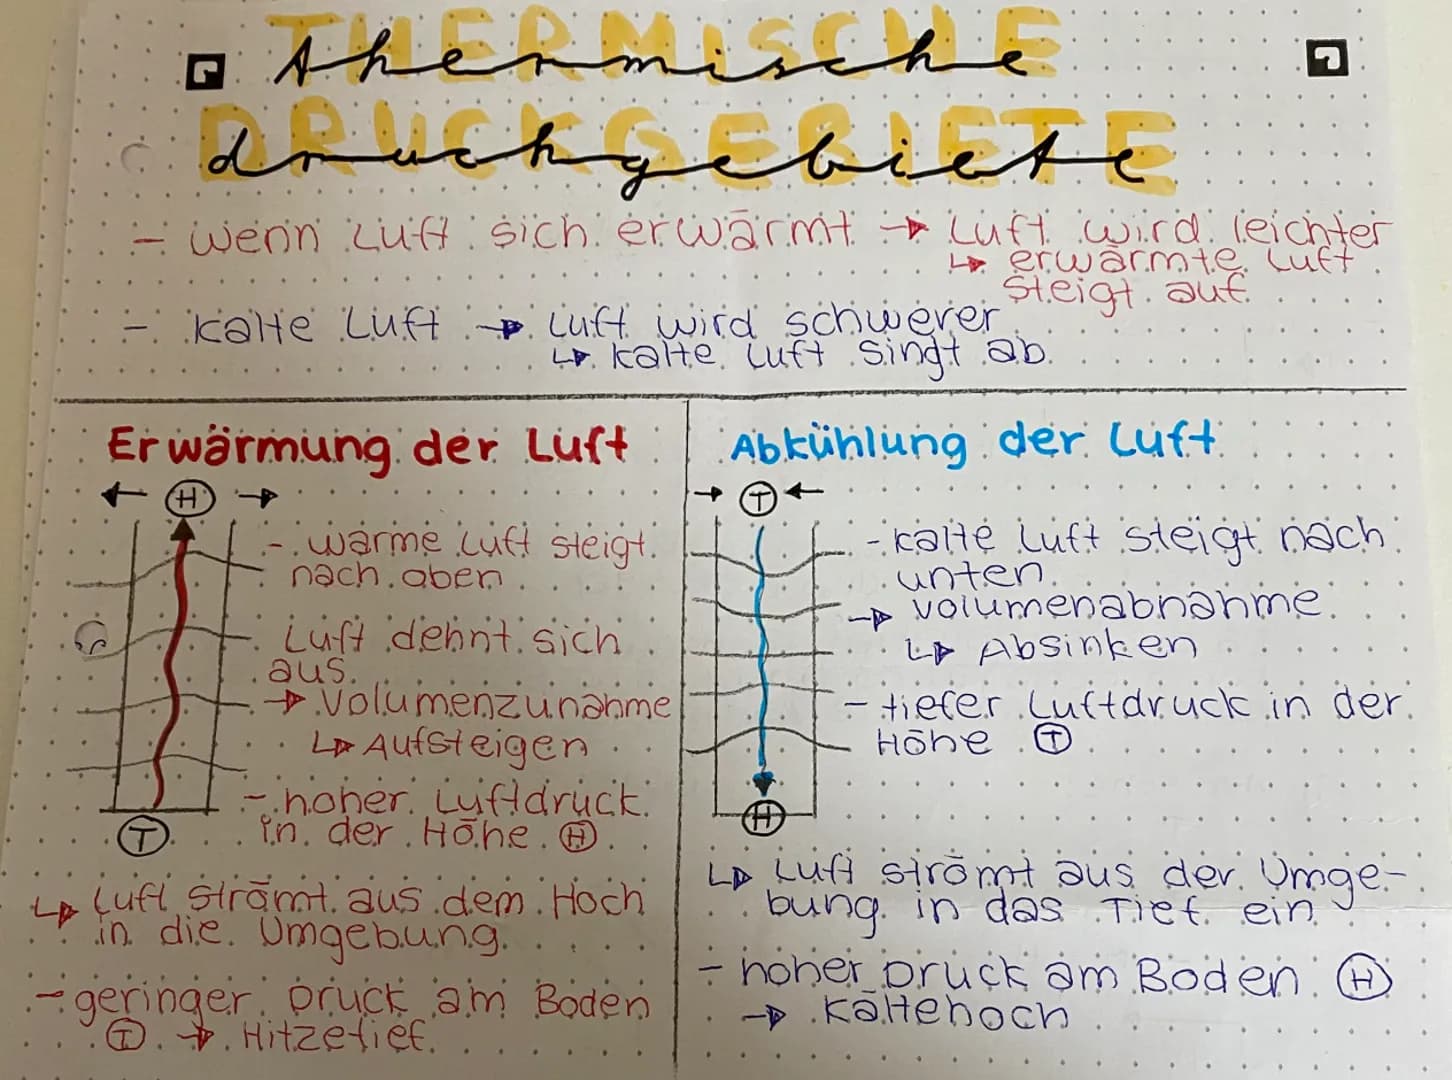 THERMISCHE
thermische
DRUCKGEBIETE
druckgebiete
- wenn Luft sich erwärmt → Luft wird leichter
↳ erwärmte Luft
steigt auf
- kalte Luft → Luft wird schwerer
↳ kalte Luft singt ab
Erwärmung der Luft
← H →
- warme Luft steigt
nach oben
Luft dehnt sich
aus
→ Volumenzunahme
↳ Aufsteigen
- hoher Luftdruck
in der Höhe H
T
↳ Luft strömt aus dem Hoch
in die Umgebung
- geringer Druck am Boden
T → Hitzetief
Abkühlung der Luft
→ T ←
- kalte Luft steigt nach
unten
→ Volumenabnahme
↳ Absinken
- tiefer Luftdruck in der
Höhe T
H
↳ Luft strömt aus der Umge-
bung in das Tief ein
- hoher Druck am Boden H
→ Kältehoch